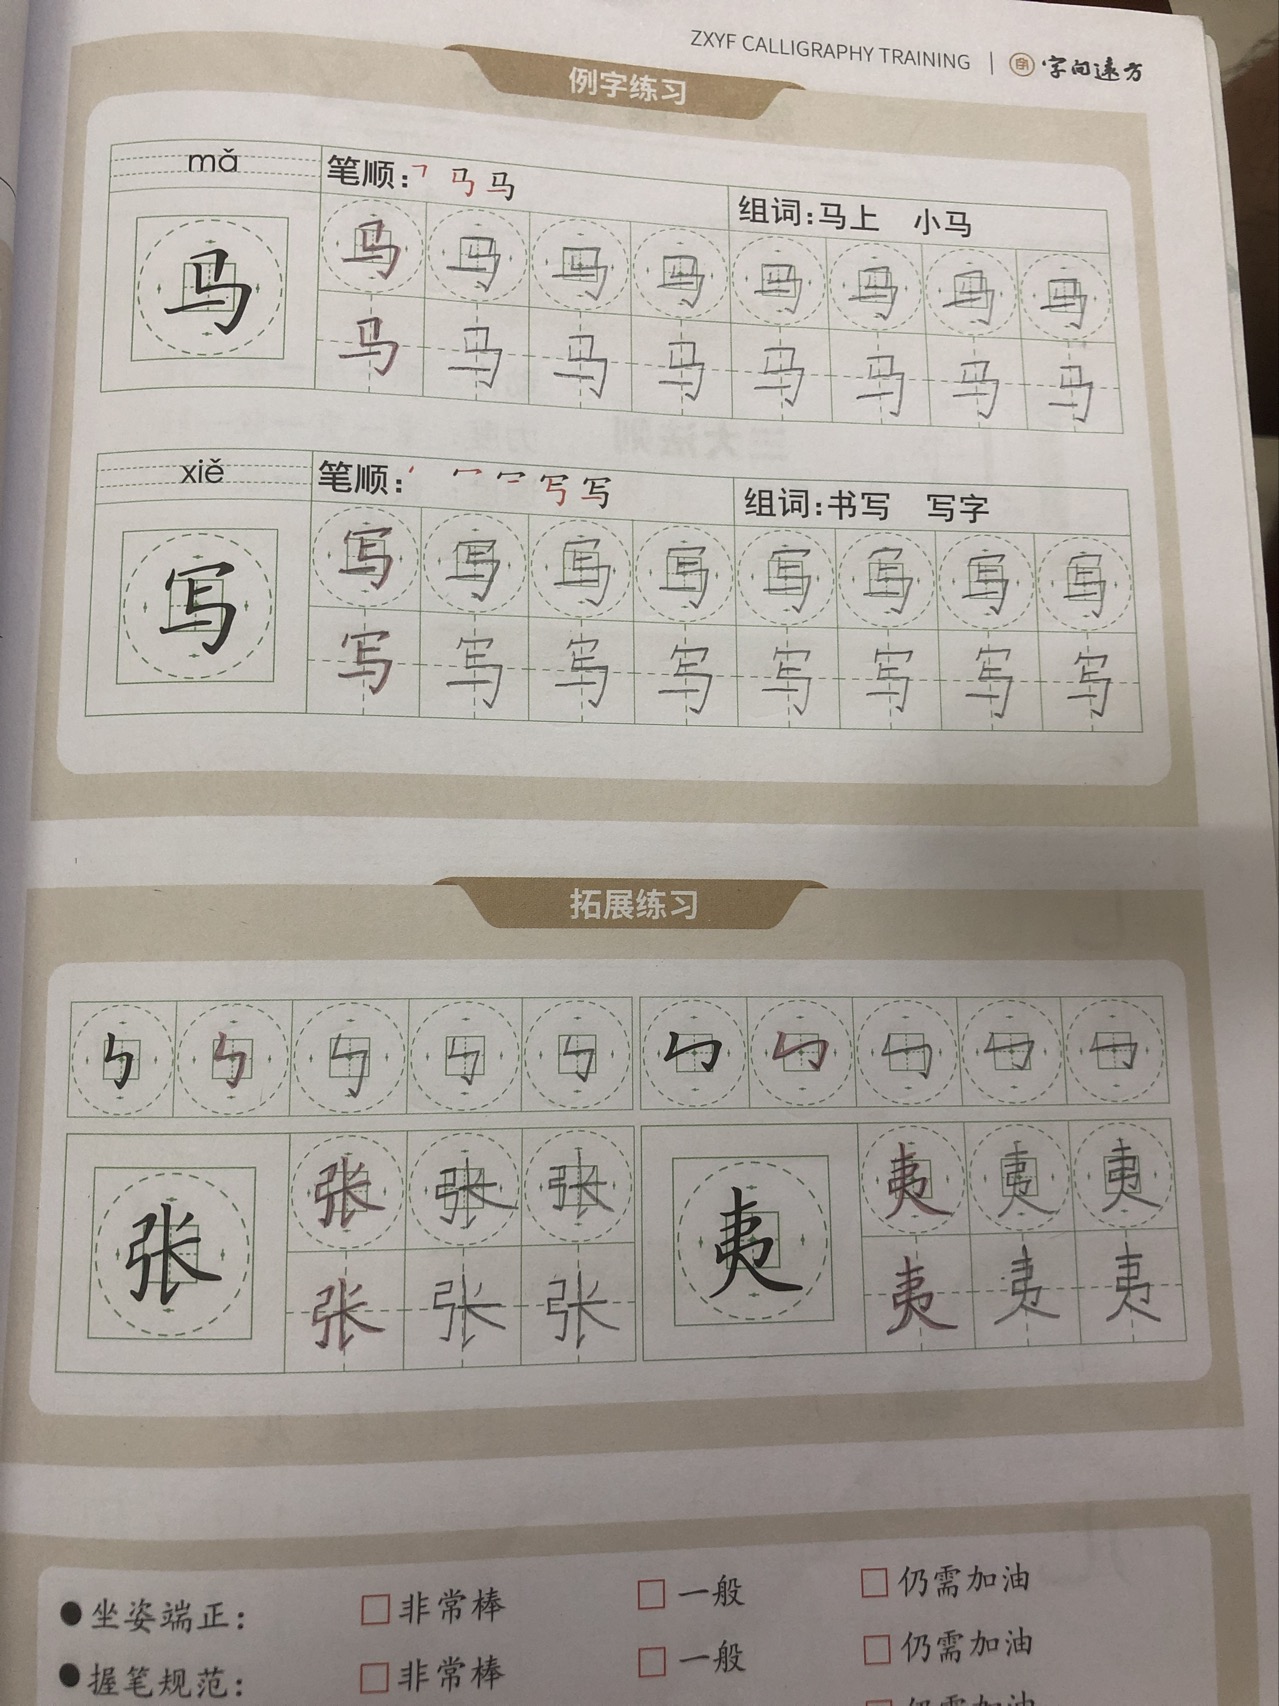 ZXYF CALLIGRAPHY TRAINING | 字间远方
例字练习
mǎ
笔顺: ㇕ 马 马
组词:马上 小马
马 马 马 马 马 马 马 马 马
马 马 马 马 马 马 马 马
xiě
笔顺: 丶 冖 写 写
组词:书写 写字
写 写 写 写 写 写 写 写 写
写 写 写 写 写 写 写 写
拓展练习
㇉ ㇉ ㇉ ㇉ ㇉ ㇉ ㇉ ㇉ ㇉ ㇉
张 张 张 张 夷 夷 夷 夷
张 张 张 夷 夷 夷
●坐姿端正: □非常棒 □一般 □仍需加油
●握笔规范: □非常棒 □一般 □仍需加油